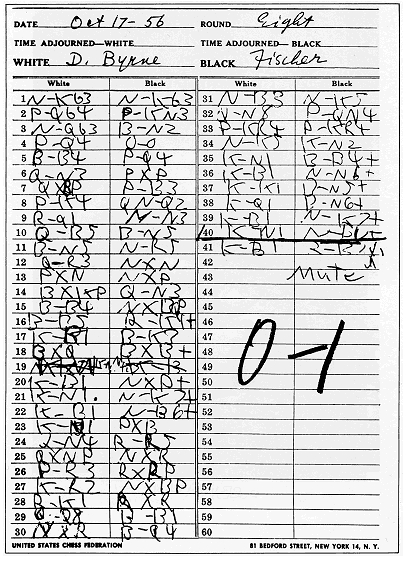 DATE Oct 17-56 ROUND Eight
TIME ADJOURNED—WHITE TIME ADJOURNED—BLACK
WHITE D. Byrne BLACK Fischer
White Black White Black
1 N-KB3 N-KB3
2 P-QB4 P-KN3
3 N-QB3 B-N2
4 P-Q4 O-O
5 B-B4 P-Q4
6 Q-N3 PXP
7 QXBP P-B3
8 P-K4 QN-Q2
9 R-Q1 N-N3
10 Q-B5 B-N5
11 B-N5 N-R5
12 Q-R3 NXN
13 PXN NXP
14 BXKP Q-N3
15 B-B4 NXBP
16 B-B5 KR-K1+
17 K-B1 B-K3
18 BXQ BXB+
19
20 K-B1 NXP+
21 K-N1 N-K7+
22 K-B1 N-B6+
23 K-N1 PXB
24 Q-N4 R-R5
25 QXNP NXR
26 P-R3 RXP
27 K-R2 NXBP
28 R-K1 RXR
29 Q-Q8 B-B1
30 NXR B-Q4
31 N-B3 N-K5
32 Q-N8 P-QN4
33 P-KR4 P-KR4
34 N-K5 K-N2
35 K-N1 B-B4+
36 K-B1 N-N6+
37 K-K1 B-N5+
38 K-Q1 B-N6+
39 K-B1 N-K7+
40 K-N1 N-B6+
41 K-B1
42
43 Mate
44
45
46
47
48 0-1
49
50
51
52
53
54
55
56
57
58
59
60
UNITED STATES CHESS FEDERATION 81 BEDFORD STREET, NEW YORK 14, N. Y.